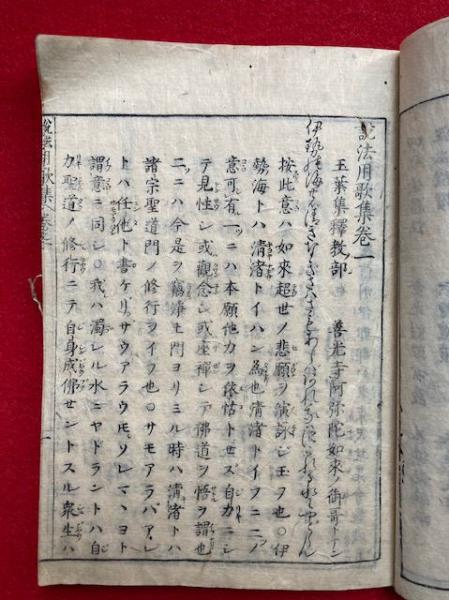 説法用歌集巻一
玉葉集釋教部　善光寺阿弥陀如来ノ御哥トナン
伊勢の海の清きなぎさはさもあらばあれ我は濁れる水にやどらん
按此意ハ如來超世ノ悲願ヲ演詠シ玉フ也○伊
勢海トハ清渚トイハン為也清渚トイフニ二ノ
意可有一ニハ本願他力ヲ依怙トセズ自力ニシ
テ見性シ或觀念シ或座禪シテ佛道ヲ悟ヲ謂也
二ニハ今是ヲ窺淨土門ヨリミル時ハ清渚トハ
諸宗聖道門ノ修行ヲイフ也○サモアラバアレ
トハ任他ト書ケリサウアラウ𪜈ソレマヽヨト
謂意ニ同シ○我ハ濁レル水ニヤドラントハ自
力聖道ノ修行ニテ自身成佛セントスル衆生ハ
説法用歌集巻一
一